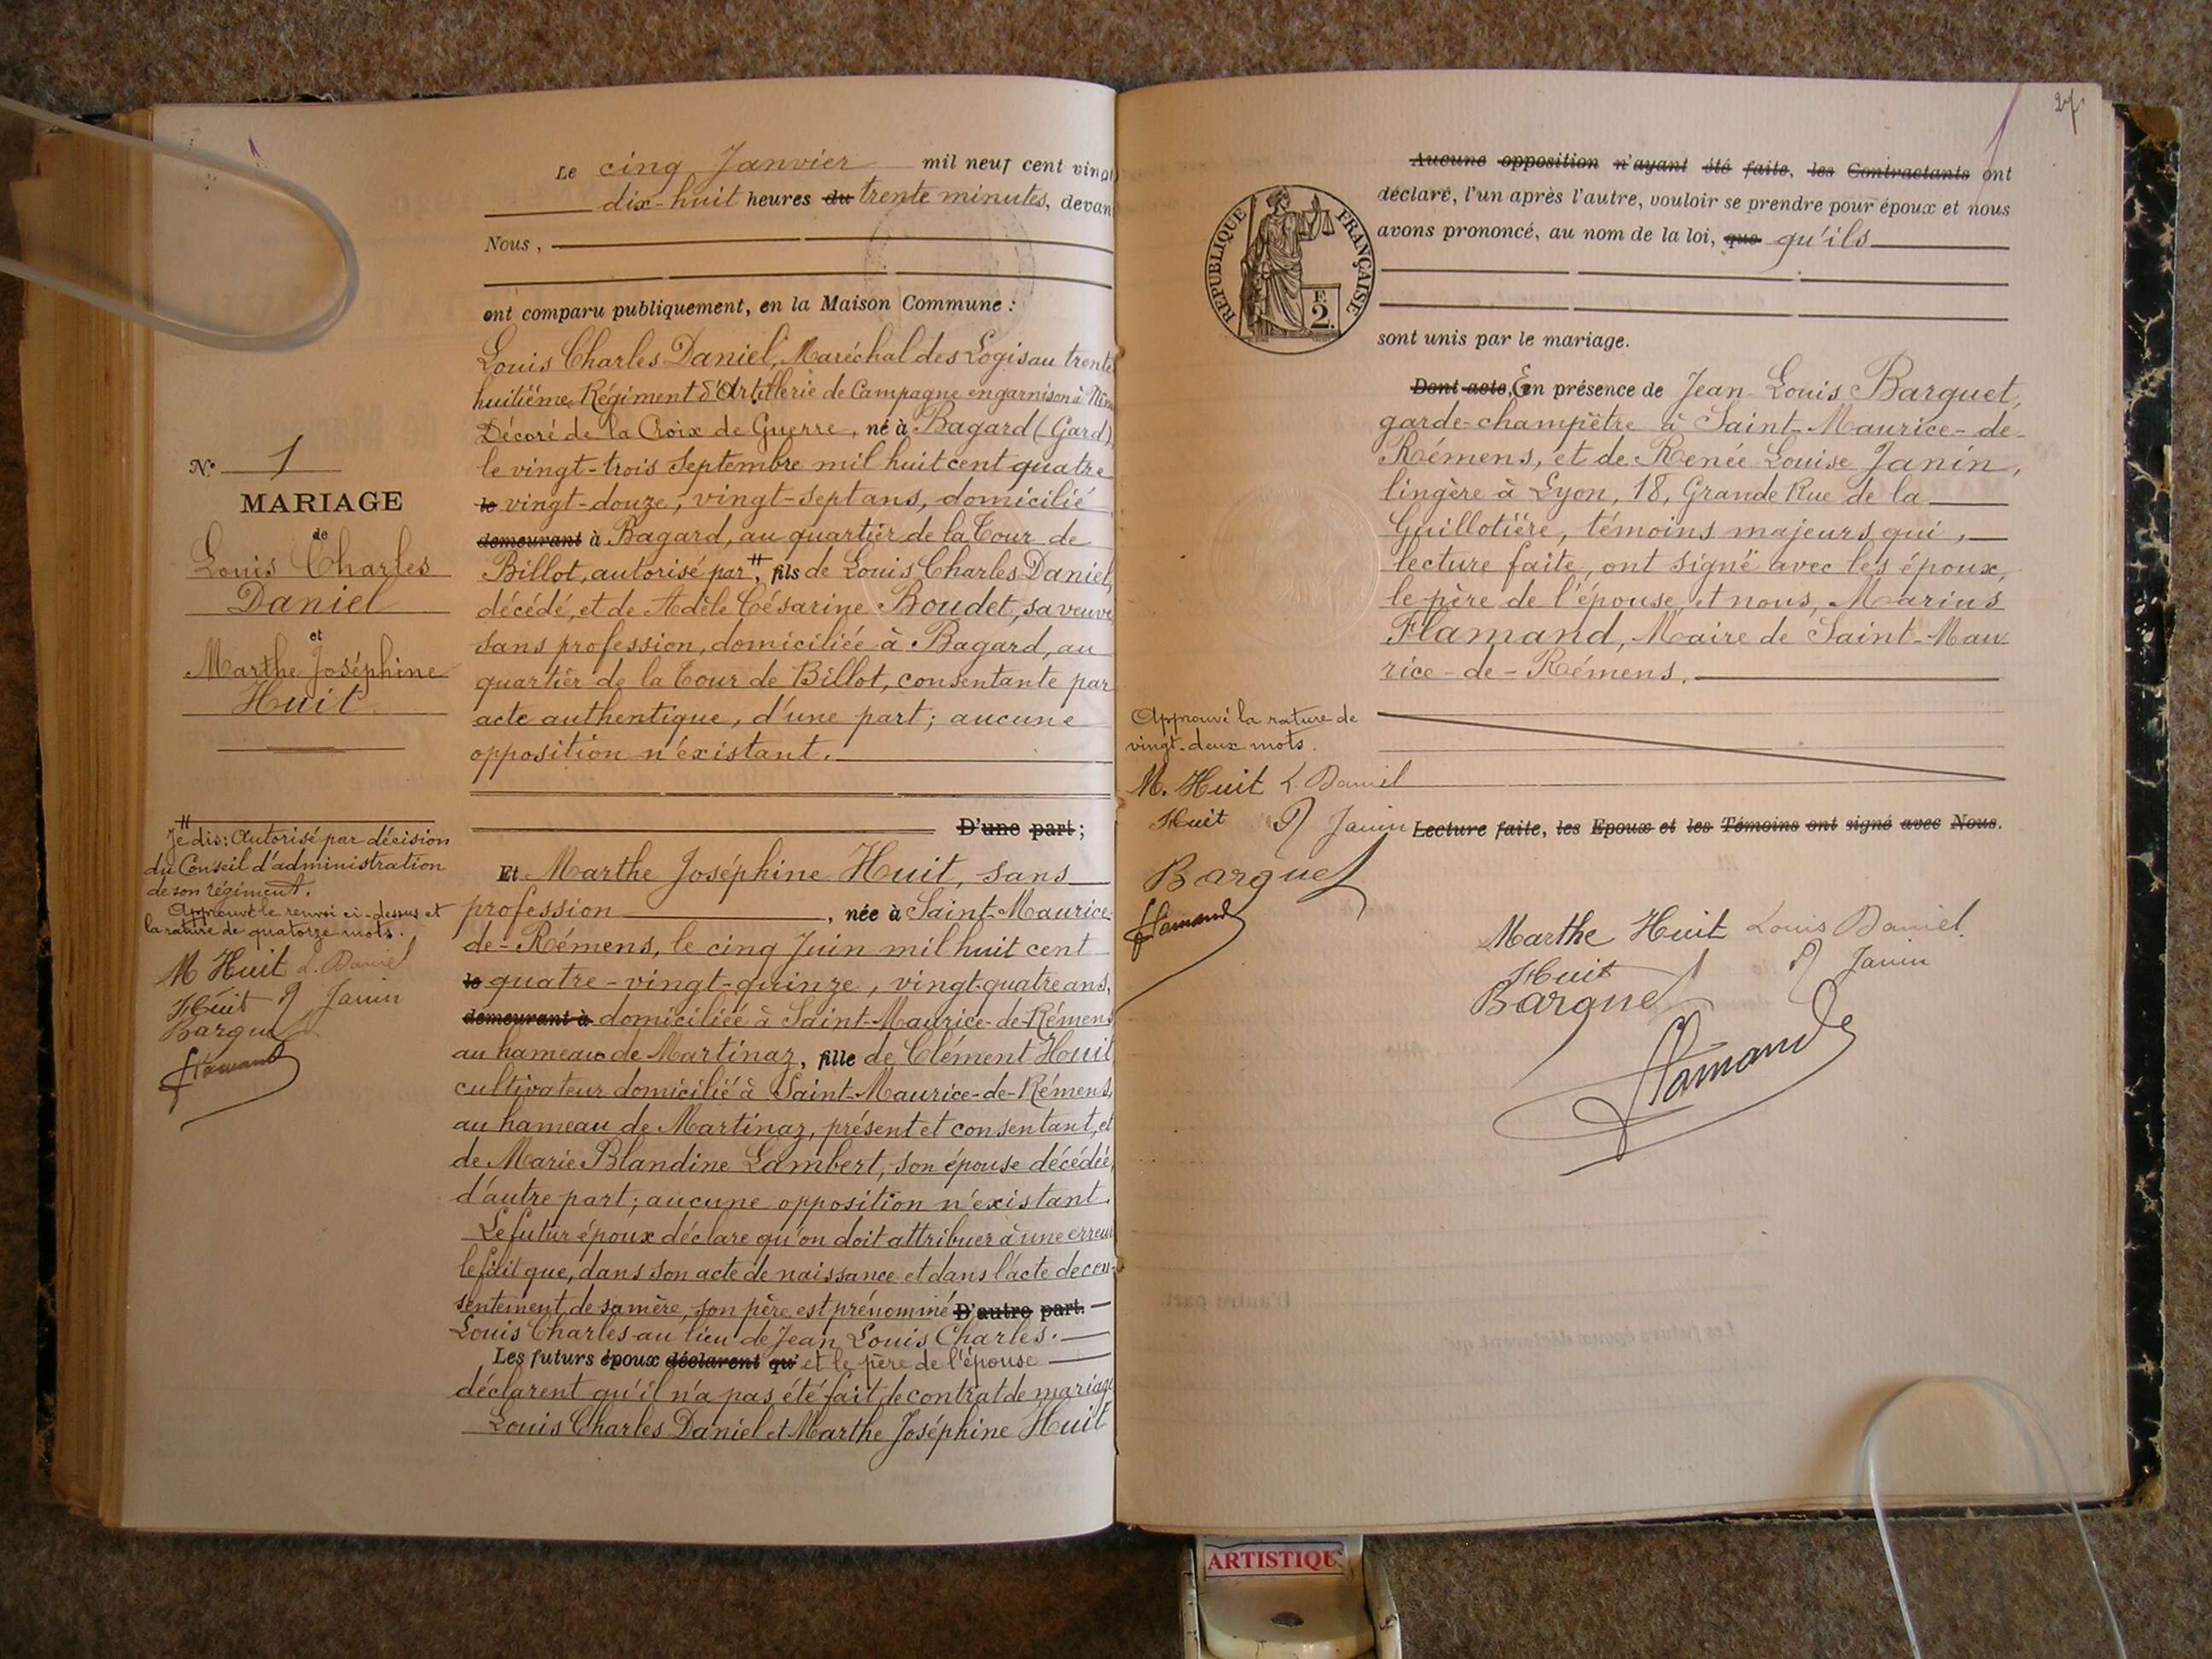 Le cinq Janvier mil neuf cent vingt
dix-huit heures du trente minutes, devan
Nous,
ont comparu publiquement, en la Maison Commune :
Louis Charles Daniel, Maréchal des Logis au trente
huitième Régiment d'Artillerie de Campagne en garnison à Nîm
Décoré de la Croix de Guerre, né à Bagard (Gard)
le vingt-trois Septembre mil huit cent quatre
le vingt-douze, vingt-sept ans, domicilié
demeurant à Bagard, au quartier de la Tour de
Billot, autorisé par #, fils de Louis Charles Daniel,
décédé, et de Adèle Césarine Boudet, sa veuve
sans profession, domiciliée à Bagard, au
quartier de la Tour de Billot, consentante par
acte authentique, d'une part ; aucune
opposition n'existant.
D'une part ;
Et Marthe Joséphine Huit, sans
profession, née à Saint-Maurice-
de-Rémens, le cinq Juin mil huit cent
le quatre-vingt-quinze, vingt-quatre ans,
demeurant à domiciliée à Saint-Maurice-de-Rémens
au hameau de Martinaz, fille de Clément Huit
cultivateur domicilié à Saint-Maurice-de-Rémens,
au hameau de Martinaz, présent et consentant, et
de Marie Blandine Lambert, son épouse décédée,
d'autre part ; aucune opposition n'existant.
Le futur époux déclare qu'on doit attribuer à une erreur
le fait que, dans son acte de naissance et dans l'acte de con-
sentement de sa mère, son père est prénommé D'autre part.
Louis Charles au lieu de Jean Louis Charles.
Les futurs époux déclarent qu' et le père de l'épouse
déclarent qu'il n'a pas été fait de contrat de mariage
Louis Charles Daniel et Marthe Joséphine Huit
N° 1
MARIAGE
de
Louis Charles
Daniel
et
Marthe Joséphine
Huit
#
Je dis : Autorisé par décision
du Conseil d'administration
de son régiment.
Approuvé le renvoi ci-dessus et
la rature de quatorze mots.
M Huit L. Daniel
Huit R Janin
Barguet
Flamand
27
REPUBLIQUE FRANÇAISE
F.
2.
Aucune opposition n'ayant été faite, les Contractants ont
déclaré, l'un après l'autre, vouloir se prendre pour époux et nous
avons prononcé, au nom de la loi, que qu'ils
sont unis par le mariage.
Dont acte, En présence de Jean Louis Barguet,
garde-champêtre à Saint-Maurice-de-
Rémens, et de Renée Louise Janin,
lingère à Lyon, 18, Grande Rue de la
Guillotière, témoins majeurs qui,
lecture faite, ont signé avec les époux,
le père de l'épouse et nous, Marius
Flamand, Maire de Saint-Mau-
rice-de-Rémens.
Approuvé la rature de
vingt-deux mots.
M. Huit L. Daniel
Huit R Janin
Barguet
Flamand
Lecture faite, les Epoux et les Témoins ont signé avec Nous.
Marthe Huit Louis Daniel
Huit R Janin
Barguet
Flamand
ARTISTIQU